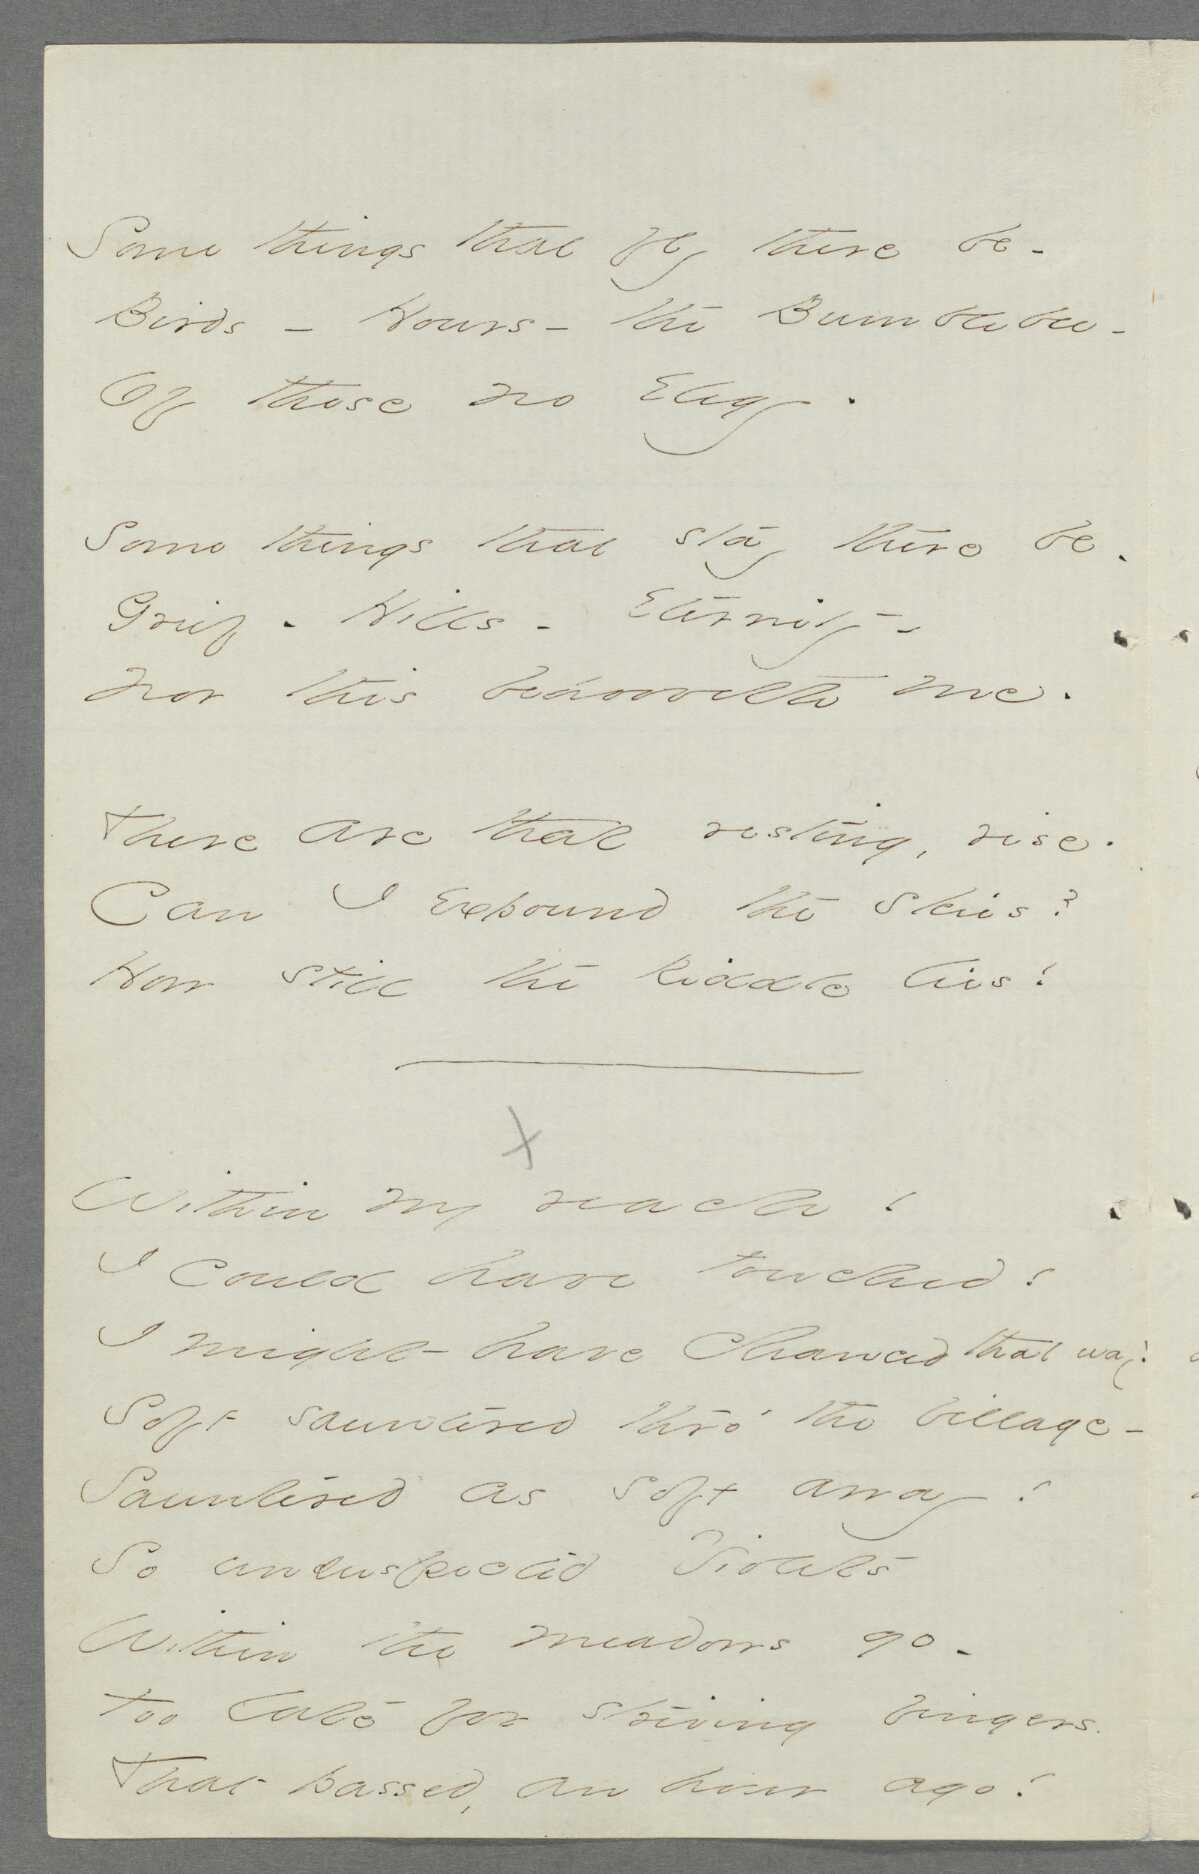 Some things that fly there be -
Birds - Hours - the Bumblebee -
Of these no Elegy.
Some things that stay there be.
Grief - Hills - Eternity -
Nor this behooveth me.
There are that resting, rise.
Can I expound the skies?
How still the Riddle lies!
x
Within my reach!
I could have touched!
I might have chanced that way!
Soft sauntered thro' the village -
Sauntered as soft away!
So unsuspected Violets
Within the meadows go -
Too late for striving fingers
That passed, an hour ago!